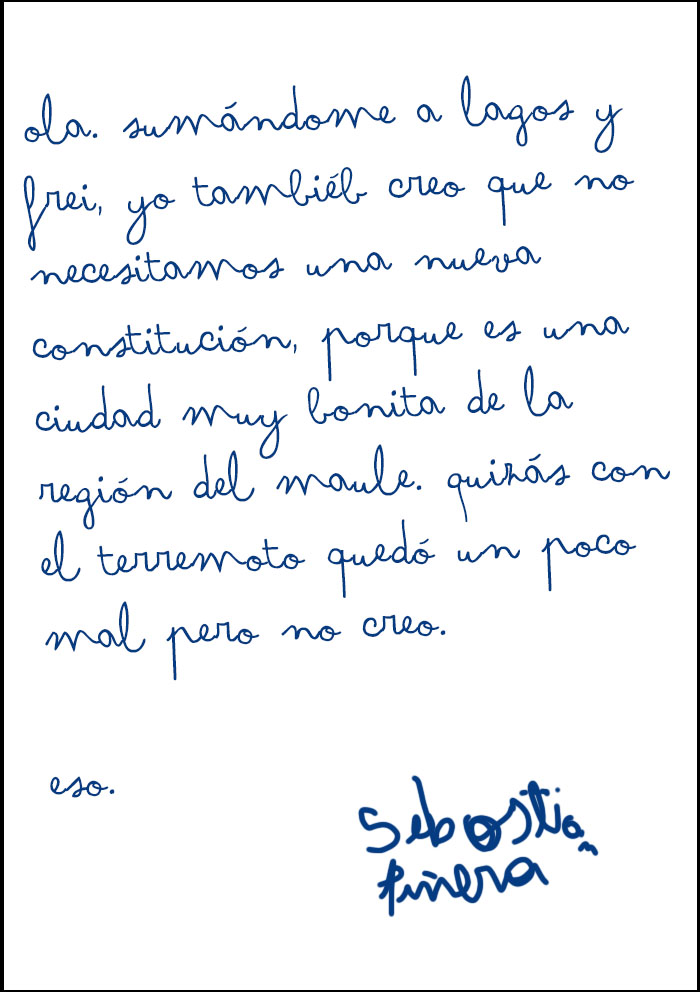 ola. sumándome a lagos y
frei, yo tambiéb creo que no
necesitamos una nueva
constitución, porque es una
ciudad muy bonita de la
región del maule. quizás con
el terremoto quedó un poco
mal pero no creo.
eso.
Sebostian
Piñera